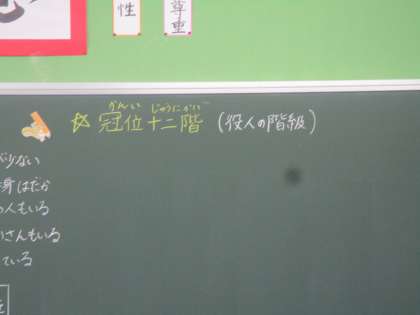 性
尊重
かんい じゅうにかい
☆冠位十二階(役人の階級)
少ない
身はだか
人もいる
さんもいる
ている